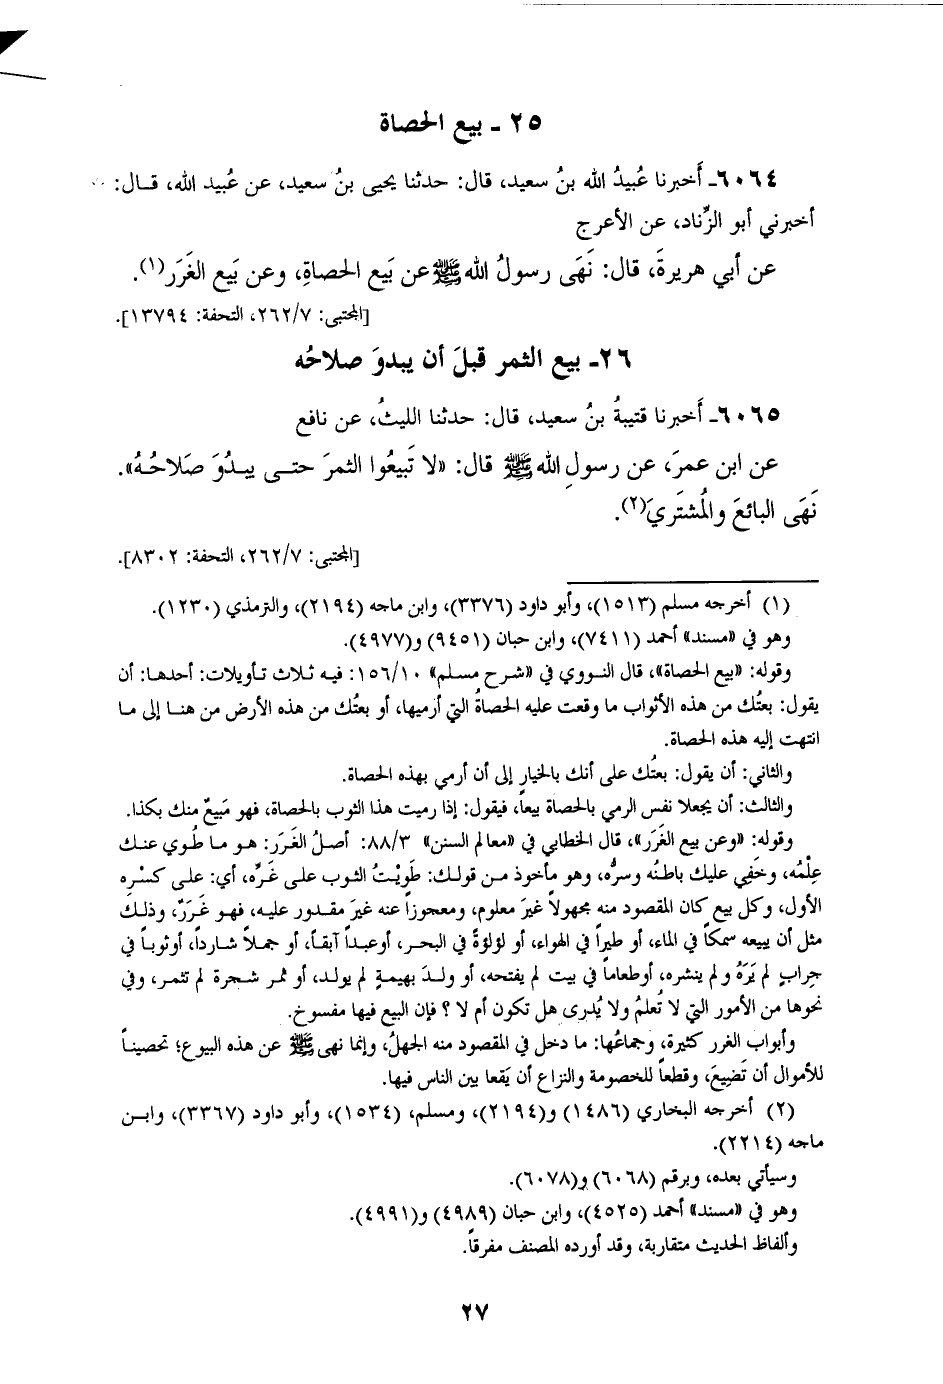 ٢٥ ـ بيع الحصاة
٦٠٦٤ـ أَخبرنا عُبيدُ الله بنُ سعيد، قال: حدثنا يحيى بنُ سعيد، عن عُبيد الله، قـال:
أخبرني أبو الزِّناد، عن الأعرج
عن أبي هريرةَ، قال: نَهَى رسولُ الله ﷺ عن بَيع الحصاةِ، وعن بَيع الغَرَر(١).
[المجتبى: ٢٦٢/٧، التحفة: ١٣٧٩٤].
٢٦ـ بيع الثمر قبلَ أن يبدوَ صلاحُه
٦٠٦٥ـ أَخبرنا قتيبةُ بنُ سعيد، قال: حدثنا الليثُ، عن نافع
عن ابن عمرَ، عن رسولِ الله ﷺ قال: «لا تَبيعُوا الثمرَ حتـى يبـدُوَ صَلاحُـهُ».
نَهَى البائعَ والمُشتَريَ(٢).
[المجتبى: ٢٦٢/٧، التحفة: ٨٣٠٢].
(١) أخرجه مسلم (١٥١٣)، وأبو داود (٣٣٧٦)، وابن ماجه (٢١٩٤)، والترمذي (١٢٣٠).
وهو في «مسند» أحمد (٧٤١١)، وابن حبان (٩٤٥١) و(٤٩٧٧).
وقوله: «بيع الحصاة»، قال النـووي في «شرح مسلم» ١٥٦/١٠: فيه ثـلاث تـأويلات: أحدهـا: أن
يقول: بعتُك من هذه الأثواب ما وقعت عليه الحصاةُ التي أرميها، أو بعتُك من هذه الأرض من هنـا إلى مـا
انتهت إليه هذه الحصاة.
والثاني: أن يقول: بعتُك على أنك بالخيار إلى أن أرمي بهذه الحصاة.
والثالث: أن يجعلا نفس الرمي بالحصاة بيعاً، فيقول: إذا رميت هذا الثوب بالحصاة، فهو مَبيعٌ منك بكذا.
وقوله: «وعن بيع الغَرَر»، قال الخطابي في «معالم السنن» ٨٨/٣: أصلُ الغَرَر: هـو مـا طُـوي عنـك
عِلْمُه، وخَفِي عليك باطنُه وسرُّه، وهو مأخوذ مـن قولـك: طَويْتُ الثـوب علـى غَـرِّه، أي: علـى كسْـرِه
الأول، وكل بيع كان المقصود منه مجهولاً غيرَ معلوم، ومعجوزاً عنه غيرَ مقـدور عليـه، فهـو غَـرَرٌ، وذلـك
مثل أن يبيعه سمكاً في الماء، أو طيراً في الهواء، أو لؤلؤةً في البحـر، أوعبـداً آبقـاً، أو جمـلاً شـارداً، أوثوبـاً في
جرابٍ لم يَرَهُ ولم ينشره، أوطعاماً في بيت لم يفتحه، أو ولـدَ بهيمـةٍ لم يولـد، أو ثمـر شـجرة لم تثمـر، وفي
نحوها من الأمور التي لا تُعلمُ ولا يُدرى هل تكون أم لا ؟ فإن البيع فيها مفسوخ.
وأبواب الغرر كثيرة، وجماعُها: ما دخل في المقصود منه الجهلُ، وإنما نهى ﷺ عن هذه البيوع؛ تحصينـاً
للأموال أن تَضِيعَ، وقطعاً للخصومة والنزاع أن يَقعا بين الناس فيها.
(٢) أخرجه البخاري (١٤٨٦) و(٢١٩٤)، ومسلم، (١٥٣٤)، وأبو داود (٣٣٦٧)، وابـن
ماجه (٢٢١٤).
وسيأتي بعده، وبرقم (٦٠٦٨) و(٦٠٧٨).
وهو في «مسند» أحمد (٤٥٢٥)، وابن حبان (٤٩٨٩) و(٤٩٩١).
وألفاظ الحديث متقاربة، وقد أورده المصنف مفرقاً.
٢٧